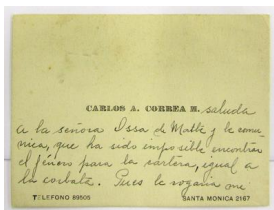 CARLOS A. CORREA M. saluda
a la señora Ossa de Matte y le comu-
nica, que ha sido imposible encontrar
el jénero para la cartera, igual a
la corbata. Pues le rogaria me
TELEFONO 89505 SANTA MONICA 2167